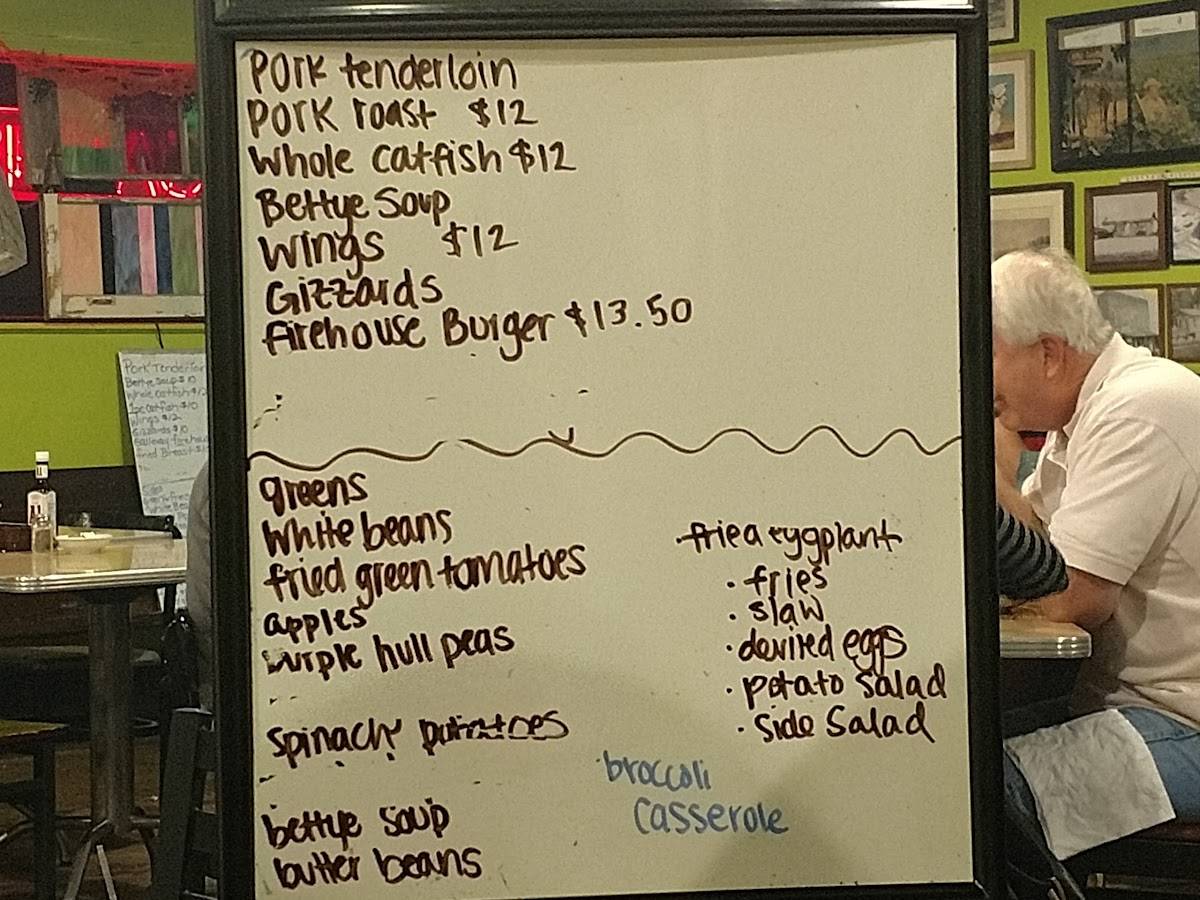 Pork tenderloin
Pork roast $12
Whole Catfish $12
Bettye Soup
Wings $12
Gizzards
firehouse Burger $13.50
greens
White beans
fried green tomatoes
apples
purple hull peas
spinach potatoes
bettye soup
butter beans
fried eggplant
· fries
· slaw
· deviled eggs
· potato Salad
· Side Salad
broccoli
Casserole
Pork Tenderloin
Bettye Soup $10
Whole Catfish $12
1pc Catfish $10
Wings $12
Gizzards $10